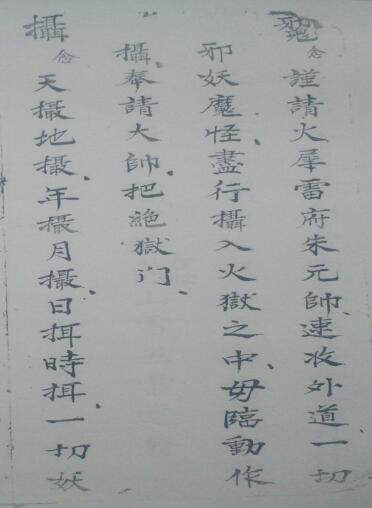 念 謹請火犀雷府朱元帥速收外道一切
邪妖魔怪盡行攝入火獄之中毋臨動作
攝奉請大帥把絕獄门
攝 念 天攝地攝年攝月攝日挕時挕一切妖